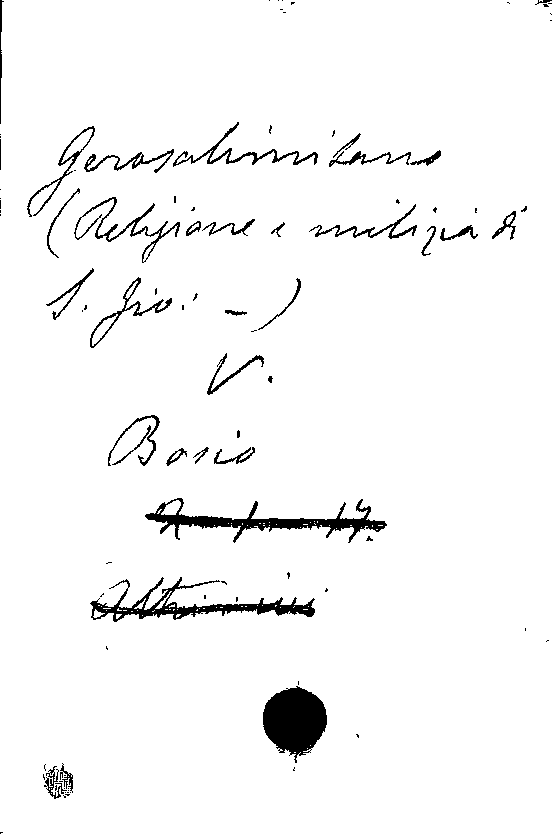 Gerosalimitano
(Religione e milizia di
S. Gio: –)
V.
Bosio